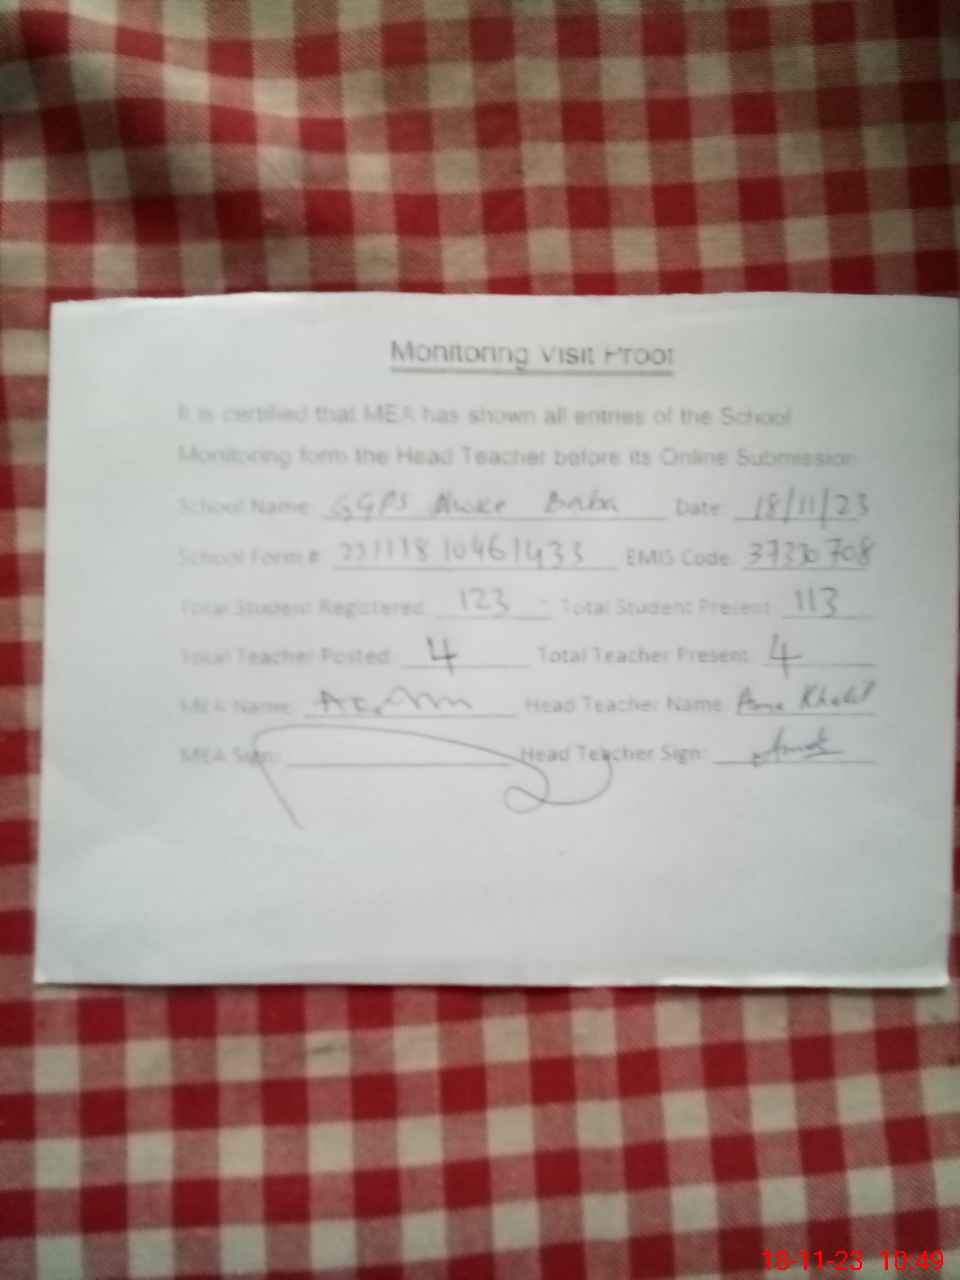 Monitoring Visit Proof
It is certified that MEA has shown all entries of the School
Monitoring form the Head Teacher before its Online Submission
School Name: GGPS Baba Date: 18/11/23
School Form #: EMIS Code: 37330708
Total Student Registered: 123 Total Student Present: 113
Total Teacher Posted: 4 Total Teacher Present: 4
MEA Name: Head Teacher Name: Khalil
MEA Sign: Head Teacher Sign:
18-11-23 10:49